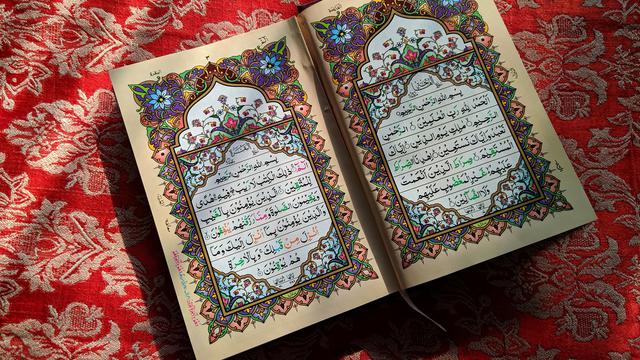 بِسْمِ اللّٰهِ الرَّحْمٰنِ الرَّحِيْمِ
اَلْحَمْدُ لِلّٰهِ رَبِّ الْعٰلَمِيْنَ الرَّحْمٰنِ
الرَّحِيْمِ مٰلِكِ يَوْمِ الدِّيْنِ اِيَّاكَ
نَعْبُدُ وَاِيَّاكَ نَسْتَعِيْنُ اِهْدِنَا الصِّرَاطَ
الْمُسْتَقِيْمَ صِرَاطَ الَّذِيْنَ اَنْعَمْتَ
عَلَيْهِمْ غَيْرِ الْمَغْضُوْبِ عَلَيْهِمْ
وَلَا الضَّآلِّيْنَ
بِسْمِ اللّٰهِ الرَّحْمٰنِ الرَّحِيْمِ
الٓمّٓ ذٰلِكَ الْكِتٰبُ لَا رَيْبَ فِيْهِ هُدًى
لِّلْمُتَّقِيْنَ الَّذِيْنَ يُؤْمِنُوْنَ بِالْغَيْبِ
وَيُقِيْمُوْنَ الصَّلٰوةَ وَمِمَّا رَزَقْنٰهُمْ يُنْفِقُوْنَ
وَالَّذِيْنَ يُؤْمِنُوْنَ بِمَآ اُنْزِلَ اِلَيْكَ وَمَآ
اُنْزِلَ مِنْ قَبْلِكَ وَبِالْاٰخِرَةِ
هُمْ يُوْقِنُوْنَ